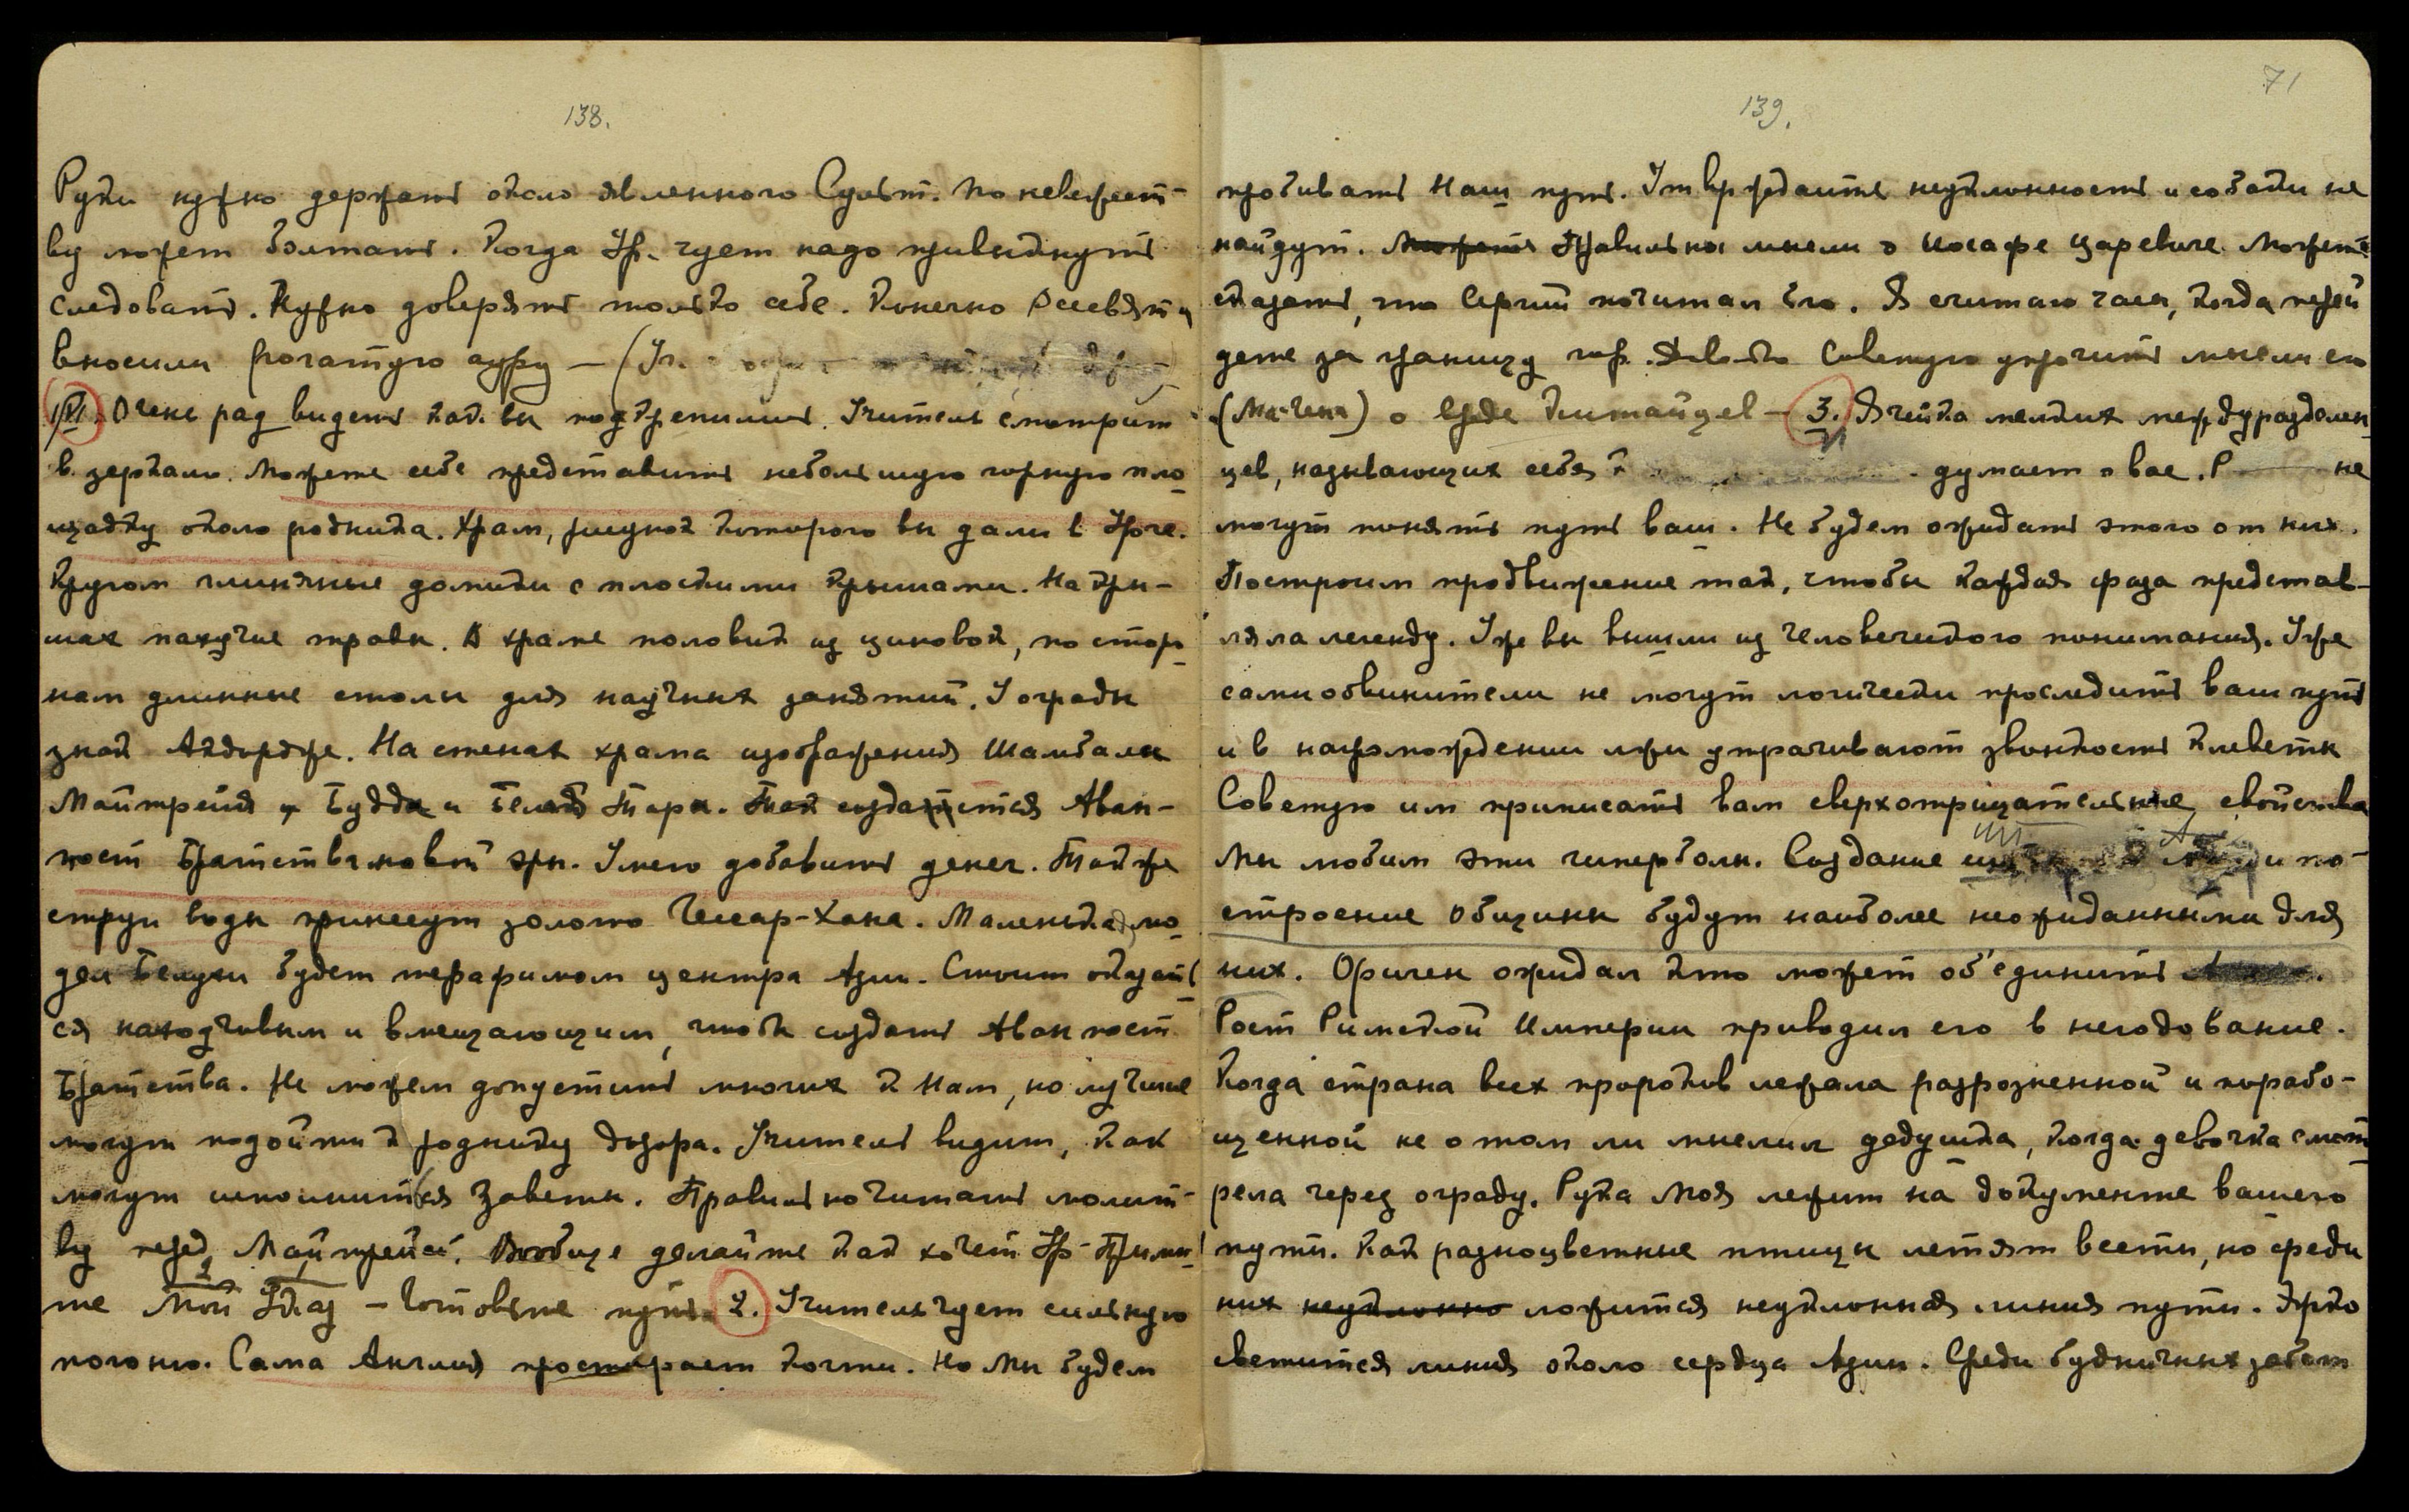 138.
Руки нужно держать около явленного Сульт. По невежест-
ву может болтать. Когда Ур. чует надо привыкнуть
следовать. Нужно доверять только себе. Конечно
вносили рогатую ауру — (Ур.
1/VI. Очень рад видеть как вы подкрепились. Учитель смотрит
в зеркало. Можете себе представить небольшую горную пло-
щадку около родника. Храм, рисунок которого вы дали в Урге.
Кругом глиняные домики с плоскими крышами. На кры-
шах пахучие травы. В храме половик из циновок, по сторо-
нам длинные столы для научных занятий. У ограды
знак Акдордже. На стенах храма изображения Шамбалы
Майтрейя и Будды и Белой Тары. Так создается Аван-
пост Братства новой эры. Умею добавить денег. Также
струи воды принесут золото Гессар-Хана. Маленькая мо-
дель Белухи будет терафимом центра Азии. Стоит оказать-
ся находчивым и вмещающим, чтобы создать Аванпост
Братства. Не можем допустить многих к Нам, но лучшие
могут подойти к роднику дозора. Учитель видит, как
могут исполниться Заветы. Правильно читать молит-
ву перед Майтрейей. Вообще делайте как хочет Ур. Прими-
те Мой Указ — Готовьте путь. 2. Учитель чует сильную
погоню. Сама Англия простирает когти. Но Мы будем
139.
71
пробивать Наш путь. Утверждайте неуклонность и собаки не
найдут. Правильны мысли о Иосафе царевиче. Можете
сказать, что Сергий почитал Его. Я считаю часы, когда перей
дете за границу гор. Советую упрочить мысли его
(Ма-Чена) о среде китайцев — 3. Ячейка мелких
VI
цев, называющих себя думает о вас. Р не
могут понять путь ваш. Не будем ожидать этого от них.
Построим продвижение так, чтобы каждая фаза представ-
ляла легенду. Уже вы вышли из человеческого понимания. Уже
сами обвинители не могут логически проследить ваш путь
и в нагромождении лжи утрачивают звонкость клеветы
Советую им приписать вам сверхотрицательные свойства
Мы любим эти гиперболы. Создание и по-
строение Общины будут наиболее неожиданными для
них. Ориген ожидал кто может об'единить
Рост Римской Империи приводил его в негодование.
Когда страна всех пророков лежала разрозненной и порабо-
щенной не о том ли мыслил дедушка, когда девочка смот-
рела через ограду. Рука Моя лежит на документе вашего
пути. Как разноцветные птицы летят вести, но среди
них неуклонно ложится неуклонная линия пути. Ярко
светится линия около сердца Азии. Среди будничных забот